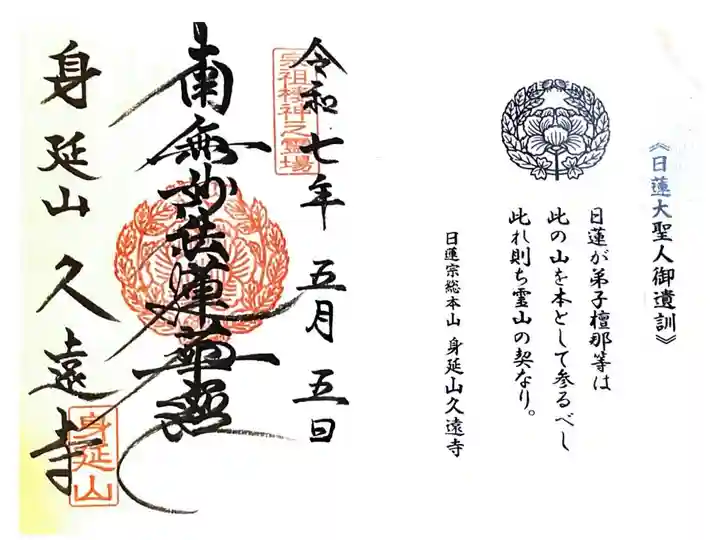 《日蓮大聖人御遺訓》
日蓮が弟子檀那等は
此の山を本として参るべし
此れ則ち霊山の契なり。
日蓮宗総本山 身延山久遠寺
令和七年 五月 五日
宗祖棲神之霊場
南無妙法蓮華経
身延山 久遠寺
身延山